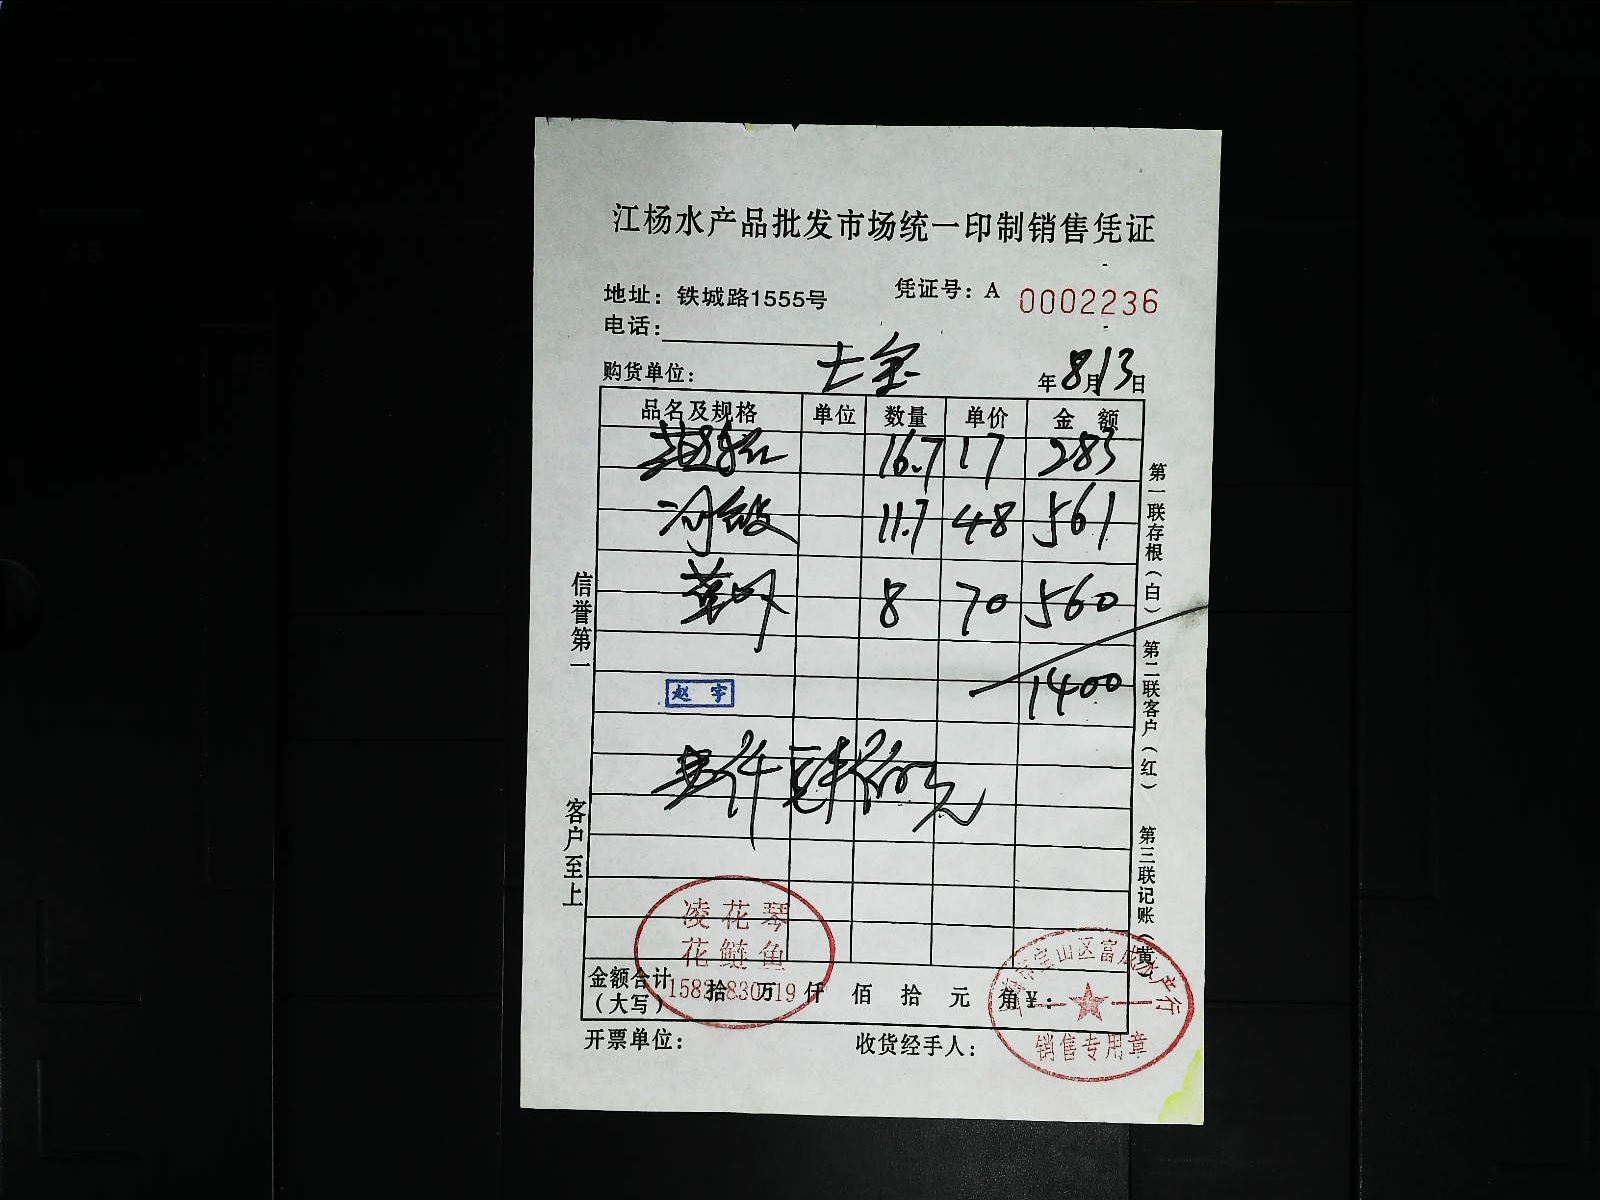 江杨水产品批发市场统一印制销售凭证
地址：铁城路1555号
凭证号：A 0002236
电话：
购货单位：七宝
年8月13日
品名及规格 单位 数量 单价 金额
16.7 17 283
11.7 48 561
8 70 560
1400
赵宇
壹仟肆佰元
凌花琴
花鲢鱼
金额合计（大写） 拾 万 仟 佰 拾 元 角 ¥：
宝山区富成水产行
销售专用章
开票单位：
收货经手人：
信誉第一
客户至上
第一联存根（白） 第二联客户（红） 第三联记账（黄）